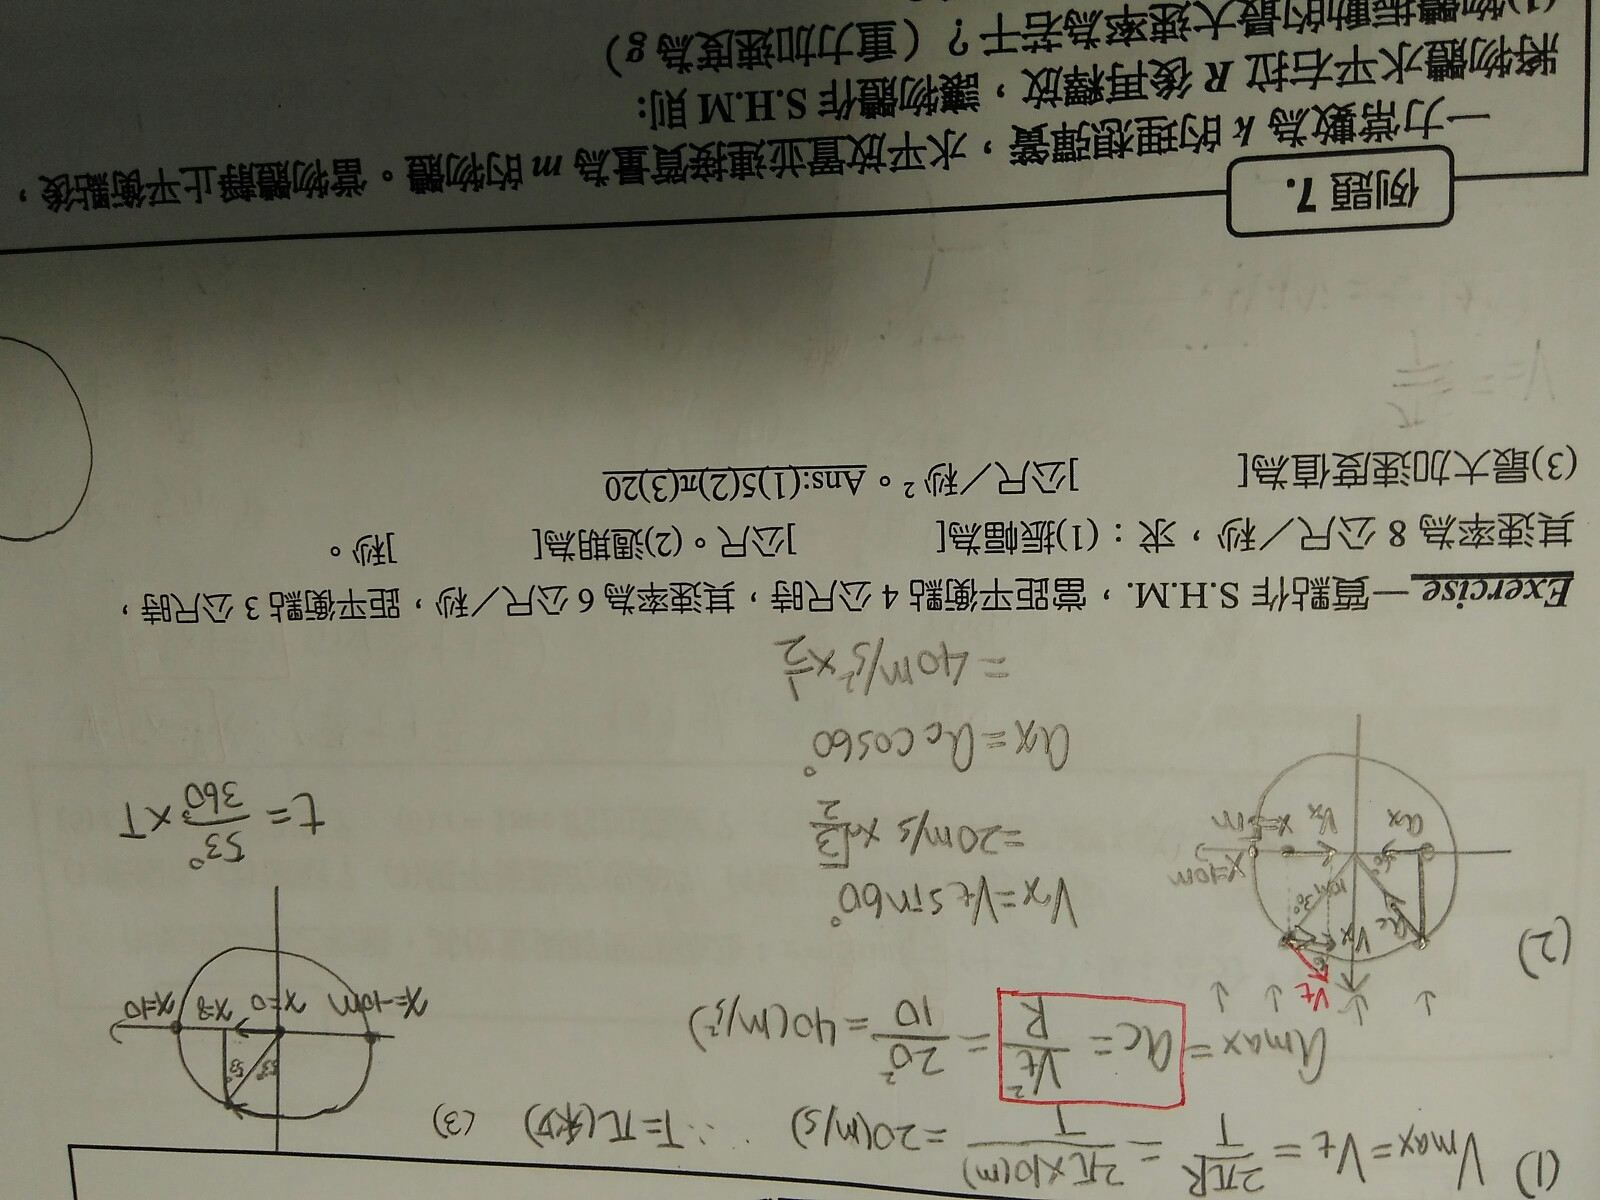 (1) Vmax=Vt=2πR/T=2π×10(m)/T=20(m/s) ∴T=π(秒) (3)
amax=ac=Vt²/R=20²/10=40(m/s²)
x=-10m x=0 x=8 x=10
53° 53°
t=53°/360°×T
(2)
Vt
Vx ac 10m 30°
ax Vx x=5m x=10m
Vx=Vt sin60°
=20m/s×√3/2
ax=ac cos60°
=40m/s²×1/2
Exercise 一質點作 S.H.M.,當距平衡點 4 公尺時,其速率為 6 公尺/秒,距平衡點 3 公尺時,
其速率為 8 公尺/秒,求:(1)振幅為[ ]公尺。(2)週期為[ ]秒。
(3)最大加速度值為[ ]公尺/秒²。Ans:(1)5(2)π(3)20
例題 7.
一力常數為 k 的理想彈簧,水平放置並連接質量為 m 的物體。當物體靜止平衡點後,
將物體水平右拉 R 後再釋放,讓物體作 S.H.M 則:
(1)物體振動的最大速率為若干?(重力加速度為 g)